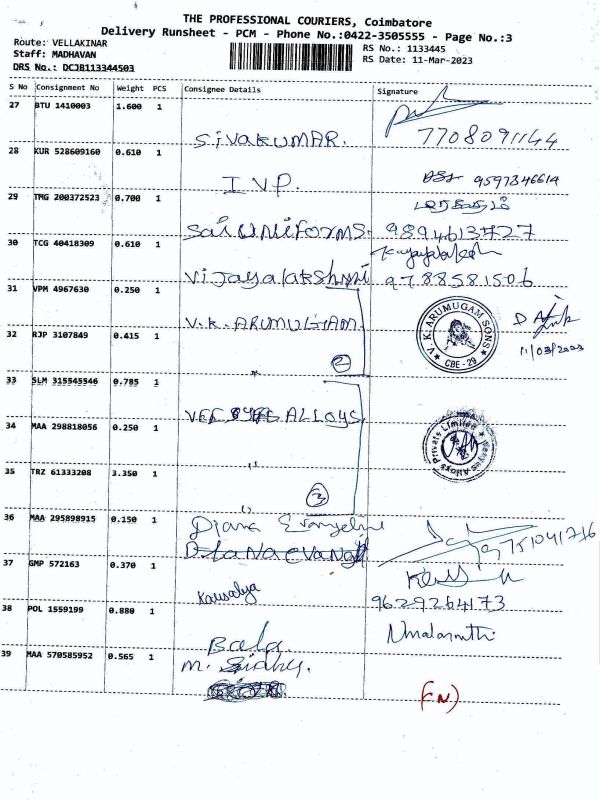 THE PROFESSIONAL COURIERS, Coimbatore
Delivery Runsheet - PCM - Phone No.:0422-3505555 - Page No.:3
Route: VELLAKINAR
Staff: MADHAVAN
DRS No.: DCJB113344503
RS No.: 1133445
RS Date: 11-Mar-2023
S No Consignment No Weight PCS Consignee Details Signature
27 BTU 1410003 1.600 1
SIVAKUMAR. 7708091144
28 KUR 528609160 0.610 1
I.V.P. 9597346614
29 TMG 200372523 0.700 1
Sai UNIFORMS. 9894613727
30 TCG 40418309 0.610 1
Vijayalakshmi 9788581506
31 VPM 4967630 0.250 1
V.K. ARUMUGAM
V.K. ARUMUGAM SONS
CBE - 29
11/03/2023
32 RJP 3107849 0.415 1
2
33 SLM 315545546 0.785 1
ALLOYS
Alloys Private Limited
34 MAA 298818056 0.250 1
35 TRZ 61333208 3.350 1
3
36 MAA 295898915 0.150 1
Diana Evangeline
37 GMP 572163 0.370 1
Kausalya
9629264173
38 POL 1559199 0.880 1
Bala
39 MAA 570585952 0.565 1